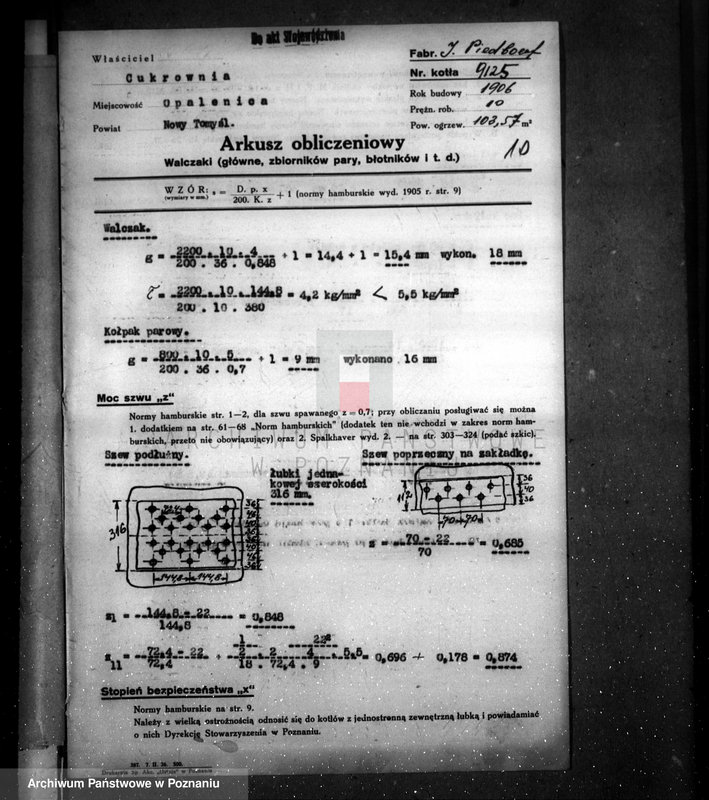 Do akt Województwa
Właściciel
Cukrownia
Miejscowość Opalenica
Powiat Nowy Tomyśl.
Fabr. J. Piedboeuf
Nr. kotła 9125
Rok budowy 1906
Prężn. rob. 10
Pow. ogrzew. 103,57 m²
Arkusz obliczeniowy
10
Walczaki (główne, zbiorników pary, błotników i t. d.)
WZÓR: s = D. p. x / 200. K. z + 1 (normy hamburskie wyd. 1905 r. str. 9)
(wymiary w mm.)
Walczak.
g = 2200 . 10 . 4 / 200 . 36 . 0,848 + 1 = 14,4 + 1 = 15,4 mm wykon. 18 mm
τ = 2200 . 10 . 144,8 / 200 . 10 . 380 = 4,2 kg/mm² < 5,5 kg/mm²
Kołpak parowy.
g = 800 . 10 . 5 / 200 . 36 . 0,7 + 1 = 9 mm wykonano 16 mm
Moc szwu „z"
Normy hamburskie str. 1—2, dla szwu spawanego z = 0,7; przy obliczaniu posługiwać się można
1. dodatkiem na str. 61—68 „Norm hamburskich" (dodatek ten nie wchodzi w zakres norm ham-
burskich, przeto nie obowiązujący) oraz 2. Spalkhaver wyd. 2. — na str. 303—324 (podać szkic).
Szew podłużny.
Szew poprzeczny na zakładkę.
łubki jedna-
kowej szerokości
316 mm.
316
72,4
36
40
36
144,8 144,8
112
36
40
36
70 70
z = 70 - 22 / 70 = 0,685
zI = 144,8 - 22 / 144,8 = 0,848
zII = 72,4 - 22 / 72,4 + 1 / 2 . 2 22² / 4 . 5,5 / 18 . 72,4 . 9 = 0,696 + 0,178 = 0,874
Stopień bezpieczeństwa „x"
Normy hamburskie na str. 9.
Należy z wielką ostrożnością odnosić się do kotłów z jednostronną zewnętrzną łubką i powiadamiać
o nich Dyrekcję Stowarzyszenia w Poznaniu.
387. 7. II. 26. 500.
Drukarnia Sp. Akc. „Ostoja" w Poznaniu
ARCHIWUM PAŃSTWOWE
W POZNANIU
Archiwum Państwowe w Poznaniu